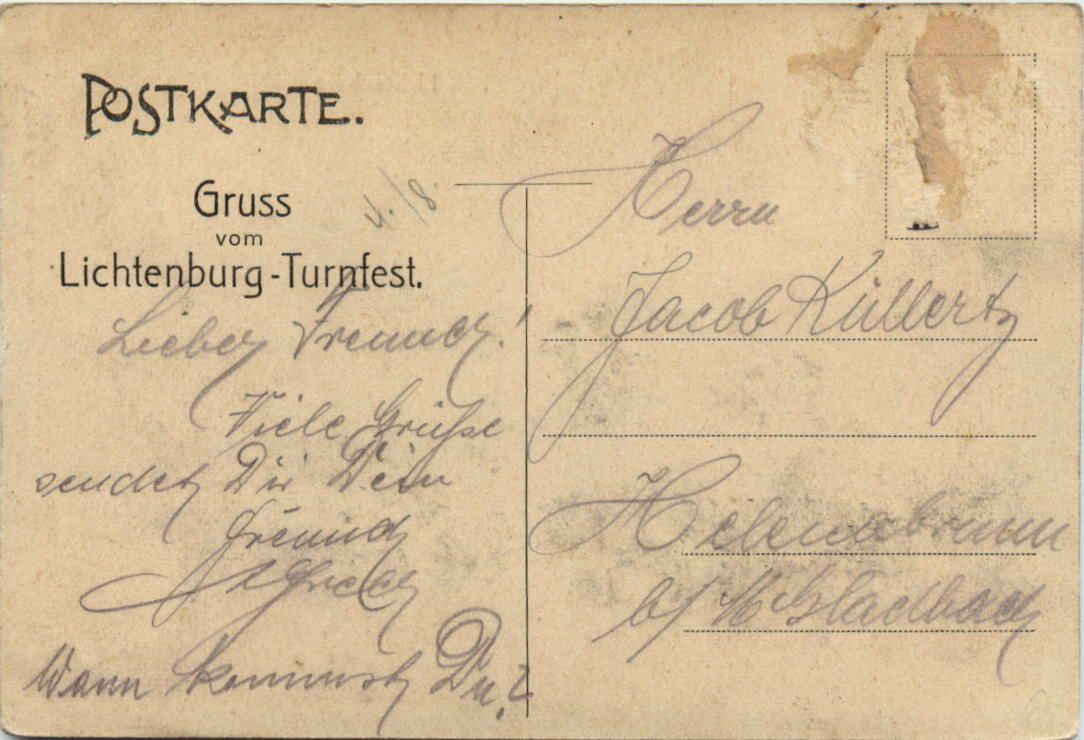 POSTKARTE.
Gruss
vom
Lichtenburg-Turnfest.
4./8.
Lieber Freund!
Viele Grüße
sendet Dir Dein
Freund
Wann kommst Du?
Herrn
Jacob Küllertz
Helenabrunn
b/ M Gladbach